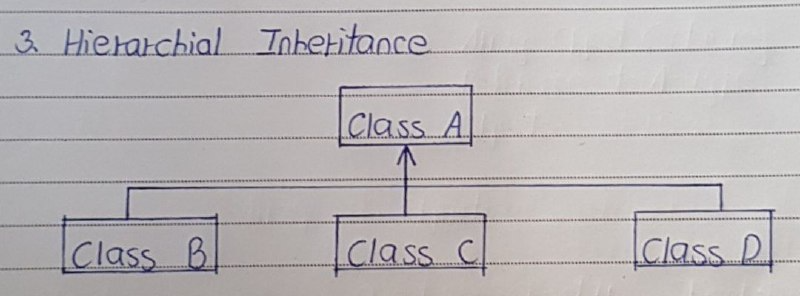 3. Hierarchial Inheritance
Class A
Class B Class C Class D